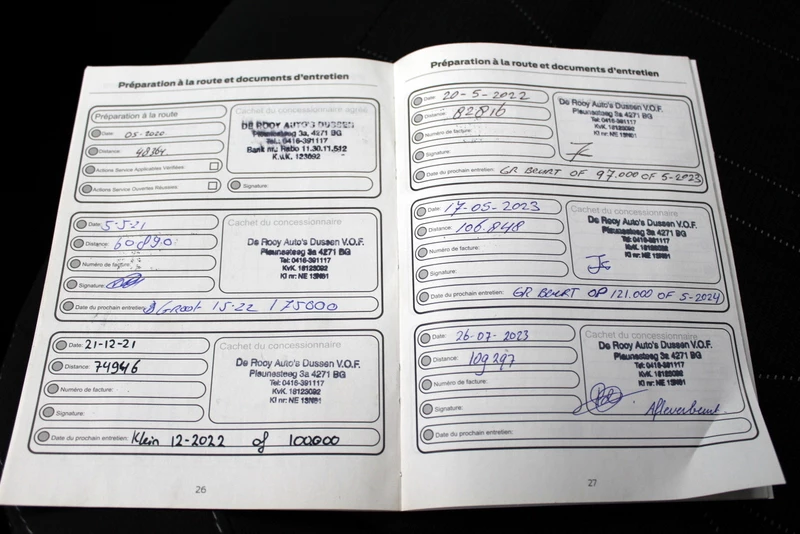 Préparation à la route et documents d'entretien
Préparation à la route
Cachet du concessionnaire agréé
Date: 05-2020
DE ROOY AUTO'S DUSSEN
Pleunasteeg 3a, 4271 BG
Distance: 48364
Tel.: 0416-391117
Bank nr.: Rabo 11.30.11.512
K.v.K. 123092
Actions Service Applicables Vérifiées
Actions Service Ouvertes Réussies
Signature:
Date: 5-5-21
Cachet du concessionnaire
Distance: 60890
De Rooy Auto's Dussen V.O.F.
Pleunasteeg 3a 4271 BG
Tel: 0416-391117
KvK. 18123092
Kl nr: NE 13N61
Numéro de facture:
Signature:
Date du prochain entretien: Groot 15-22 / 75000
Date: 21-12-21
Cachet du concessionnaire
Distance: 74946
De Rooy Auto's Dussen V.O.F.
Pleunasteeg 3a 4271 BG
Tel: 0416-391117
KvK. 18123092
Kl nr: NE 13N61
Numéro de facture:
Signature:
Date du prochain entretien: Klein 12-2022 of 100.000
26
Préparation à la route et documents d'entretien
Date: 20-5-2022
Distance: 82816
De Rooy Auto's Dussen V.O.F.
Pleunasteeg 3a 4271 BG
Tel: 0416-391117
KvK. 18123092
Kl nr: NE 13N61
Numéro de facture:
Signature:
Date du prochain entretien: GR BEURT OF 97.000 OF 5-2023
Date: 17-05-2023
Cachet du concessionnaire
Distance: 106.848
De Rooy Auto's Dussen V.O.F.
Pleunasteeg 3a 4271 BG
Tel: 0416-391117
KvK. 18123092
Kl nr: NE 13N61
Numéro de facture:
Signature:
Date du prochain entretien: GR BEURT OP 121.000 OF 5-2024
Date: 26-07-2023
Cachet du concessionnaire
Distance: 109297
De Rooy Auto's Dussen V.O.F.
Pleunasteeg 3a 4271 BG
Tel: 0416-391117
KvK. 18123092
Kl nr: NE 13N61
Numéro de facture:
Signature:
Afleverbeurt
Date du prochain entretien:
27